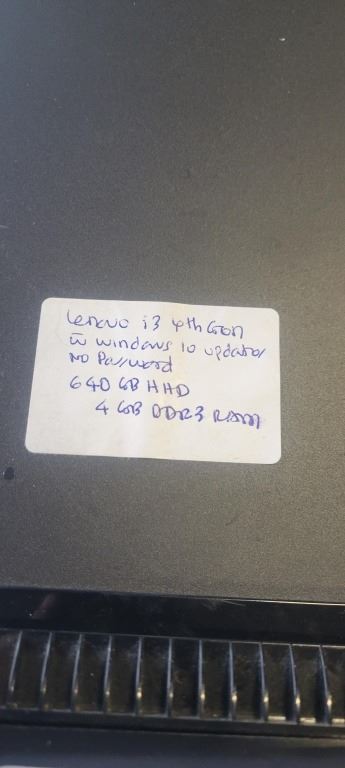 Lenovo i3 4th Gen
w windows 10 updated
No Password
640 GB HHD
4 GB DDR3 RAM